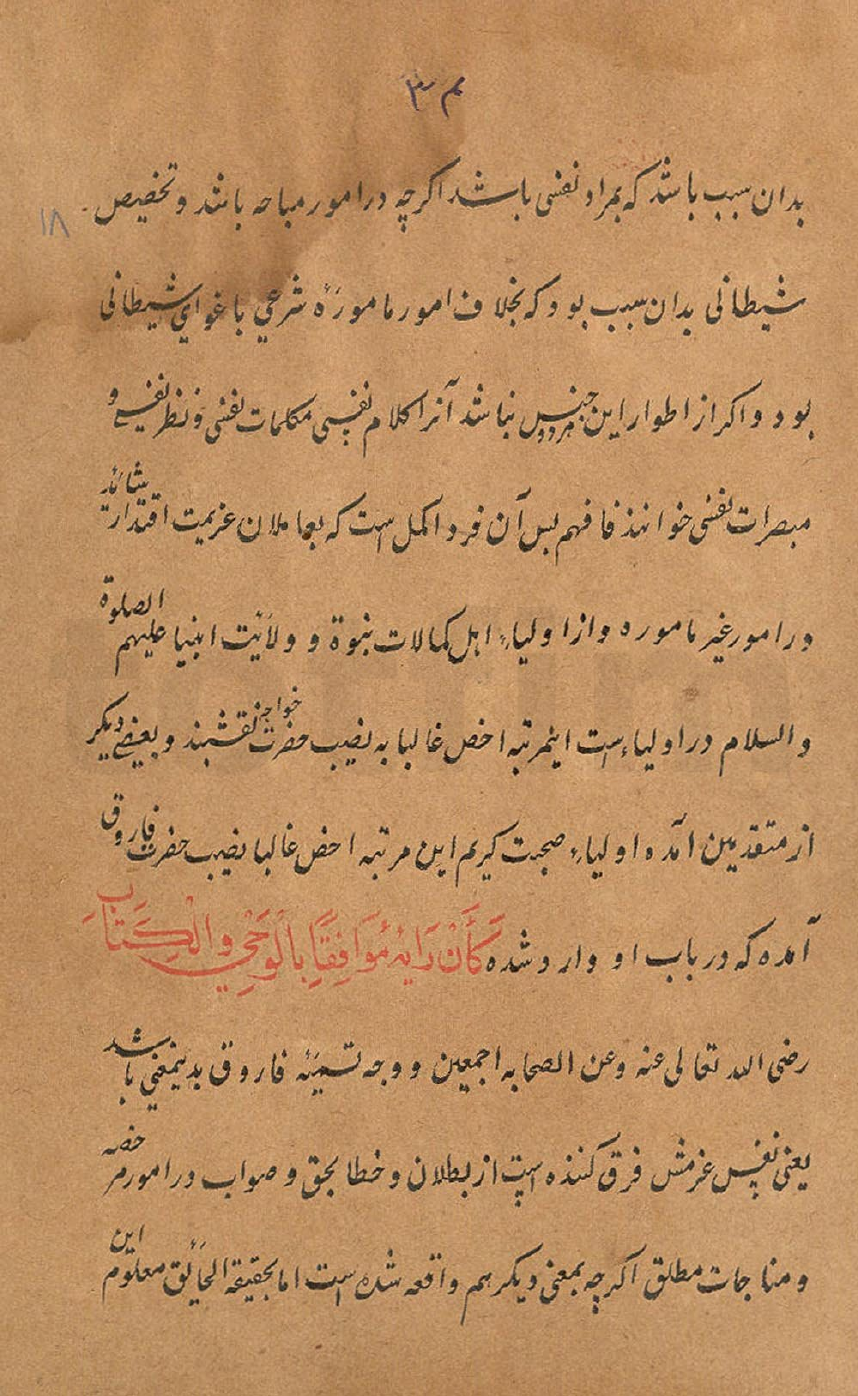 ۳۴
۱۸
بدان سبب باشد که بمراد نفسی باشد اکرچه در امور مباحه باشد و تخصیص
شیطانی بدان سبب بود که بخلاف امور ماموره شرعی باغوای شیطانی
بود و اکر از اطوار این جنس نباشد آنرا کلام نفسی مکلمات نفسی و نظر نفسی و
مبصرات نفسی خوانند فافهم بس آن فرد اکمل است که بعاملان عزیمت اقتدار
در امور غیر ماموره و از اولیاء اهل کمالات نبوة و ولایت انبیا علیهم الصلوة
والسلام در اولیاء است اینمرتبه اخص غالبا به نصیب حضرت خواجه نقشبند و بعضی دیکر
از متقدمین آمده اولیاء صحبت کریم این مرتبه اخص غالبا نصیب حضرت فاروق
آمده که در باب او وارد شده كَأَنْ رَايَهُ مُوَافِقًا بِالْوَحْيِ وَالْكِتَابِ
رضی الله تعالی عنه و عن الصحابه اجمعین و وجه تسمیهٔ فاروق بدینمعنی باشد
یعنی نفس عزمش فرق کننده است از بطلان و خطا بحق و صواب در امور
و مناجات مطلق اکرچه بمعنی دیکر هم واقعه شده است اما بحقیقة الحائق معلوم این